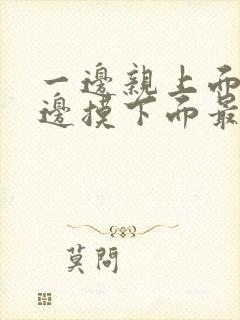 一邊親上面
邊摸下面最
莫問